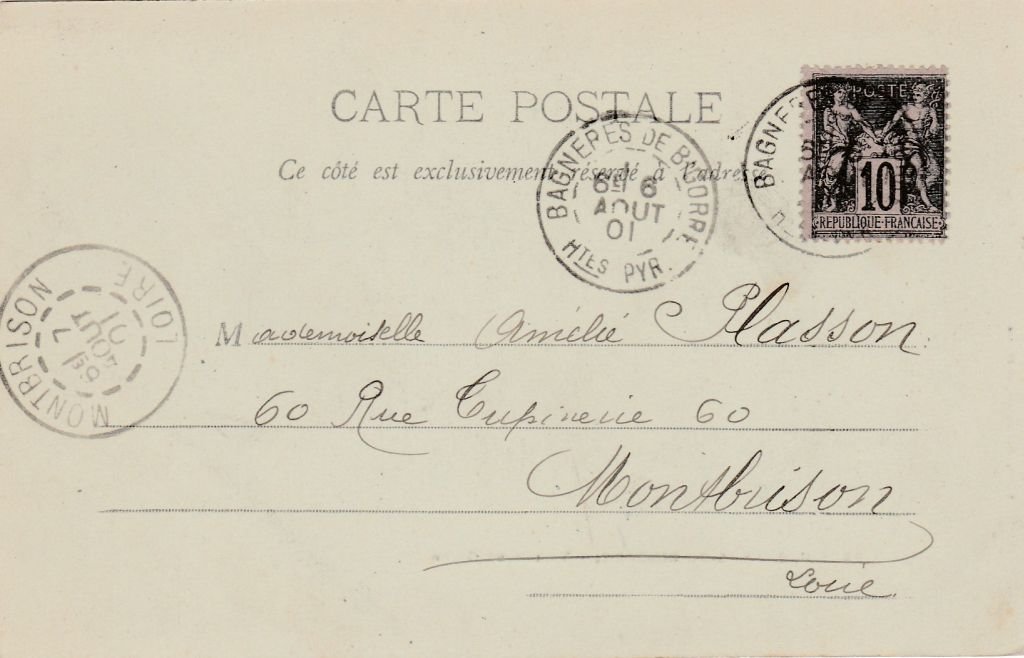 CARTE POSTALE
Ce côté est exclusivement réservé à l'adresse
POSTE
10
REPUBLIQUE·FRANÇAISE
BAGNERES DE BIGORRE
6E 6
AOUT
01
HTES PYR.
BAGNERE
MONTBRISON
6E 7
AOUT
01
LOIRE
Mademoiselle Amélie Plasson
60 Rue Tupinerie 60
Montbrison
Loire